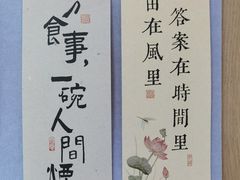 食事，一碗人間煙
答案在時間里
由在風里